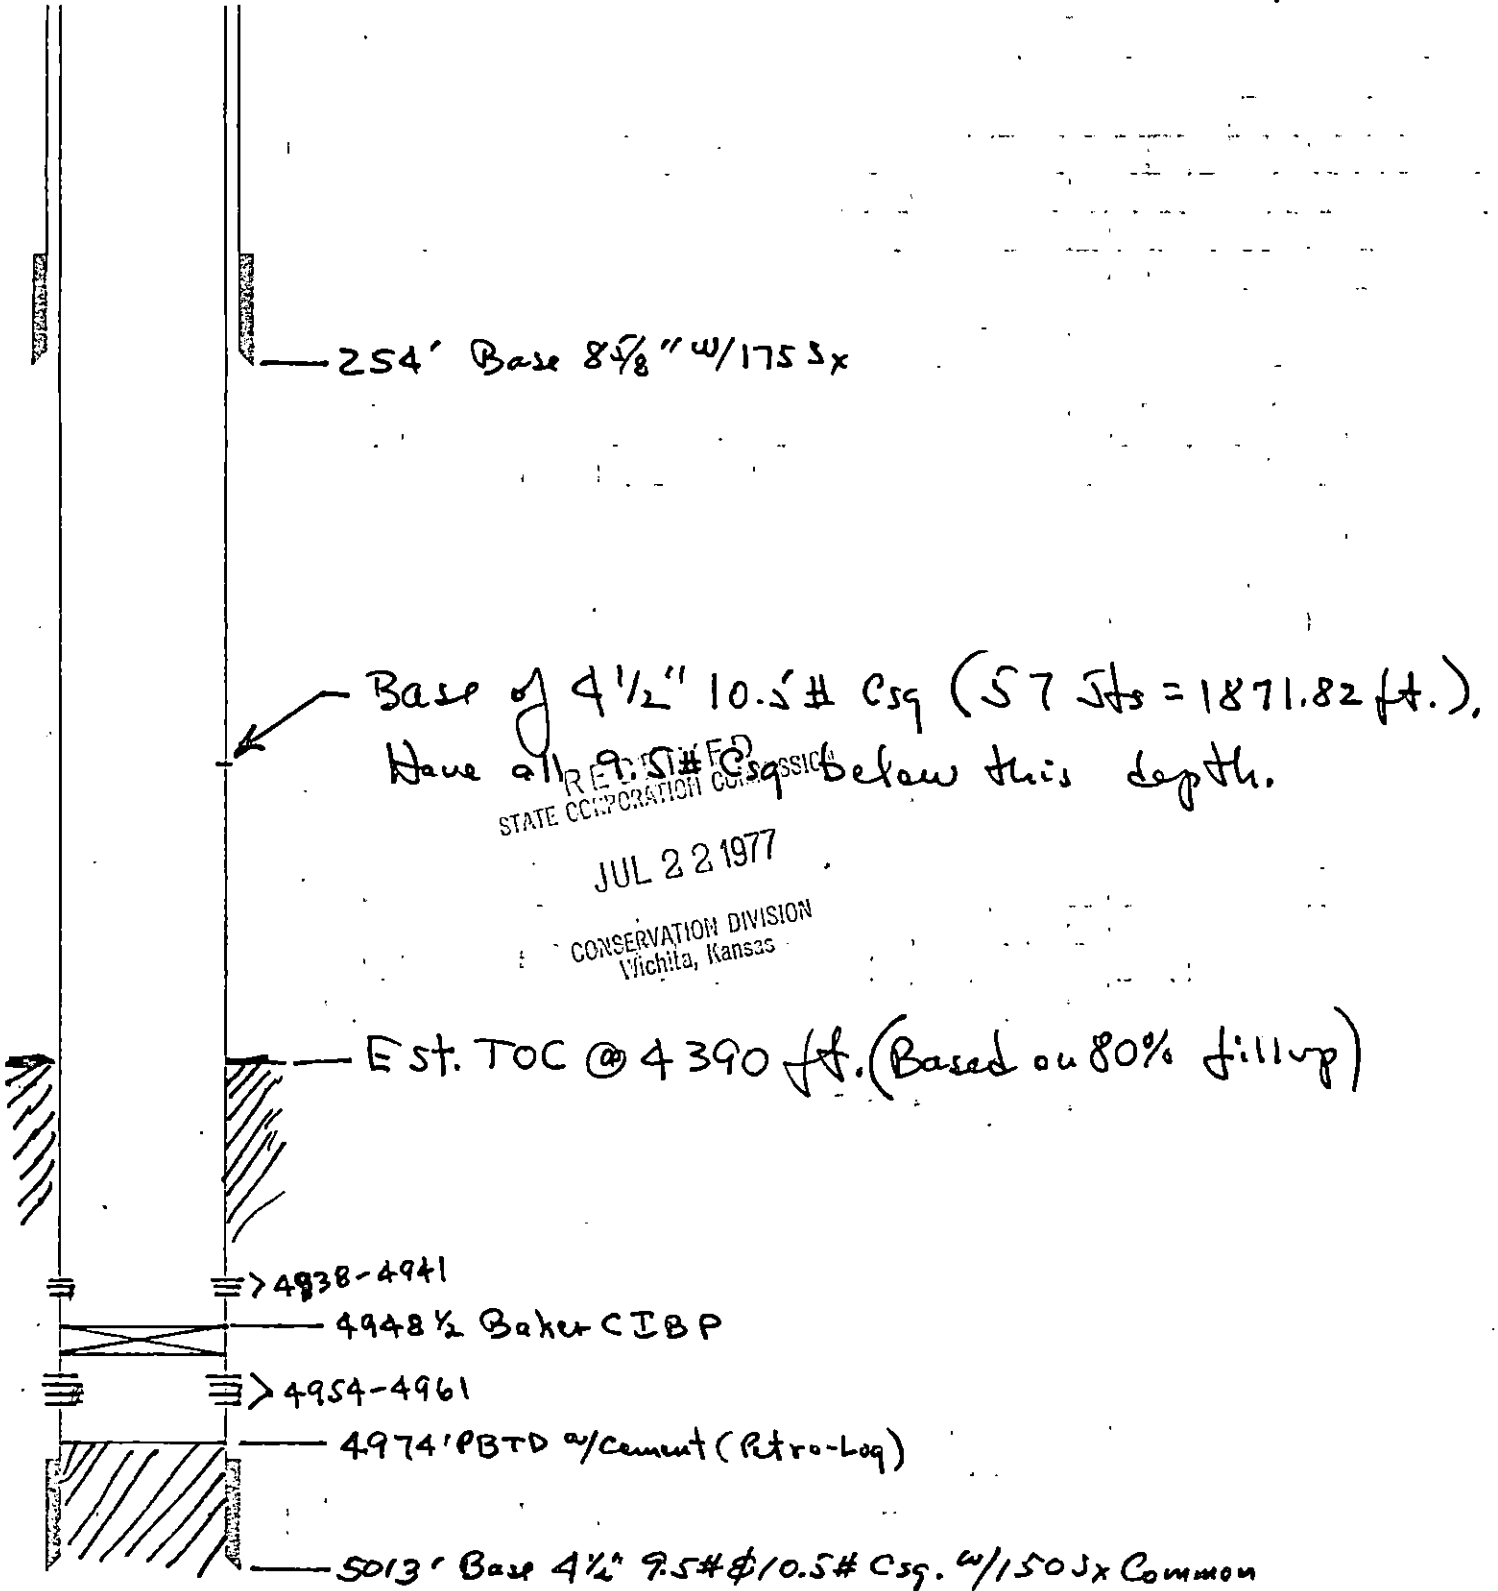 254' Base 8 5/8" w/175 Sx
Base of 4 1/2" 10.5# Csg (57 Jts = 1871.82 ft.).
Have all 9.5# Csg below this depth.
RECEIVED
STATE CORPORATION COMMISSION
JUL 22 1977
CONSERVATION DIVISION
Wichita, Kansas
Est. TOC @ 4390 ft. (Based on 80% fillup)
4938-4941
4948 1/2 Baker CIBP
4954-4961
4974' PBTD w/Cement (Petro-Log)
5013' Base 4 1/2" 9.5# & 10.5# Csg. w/150 Sx Common